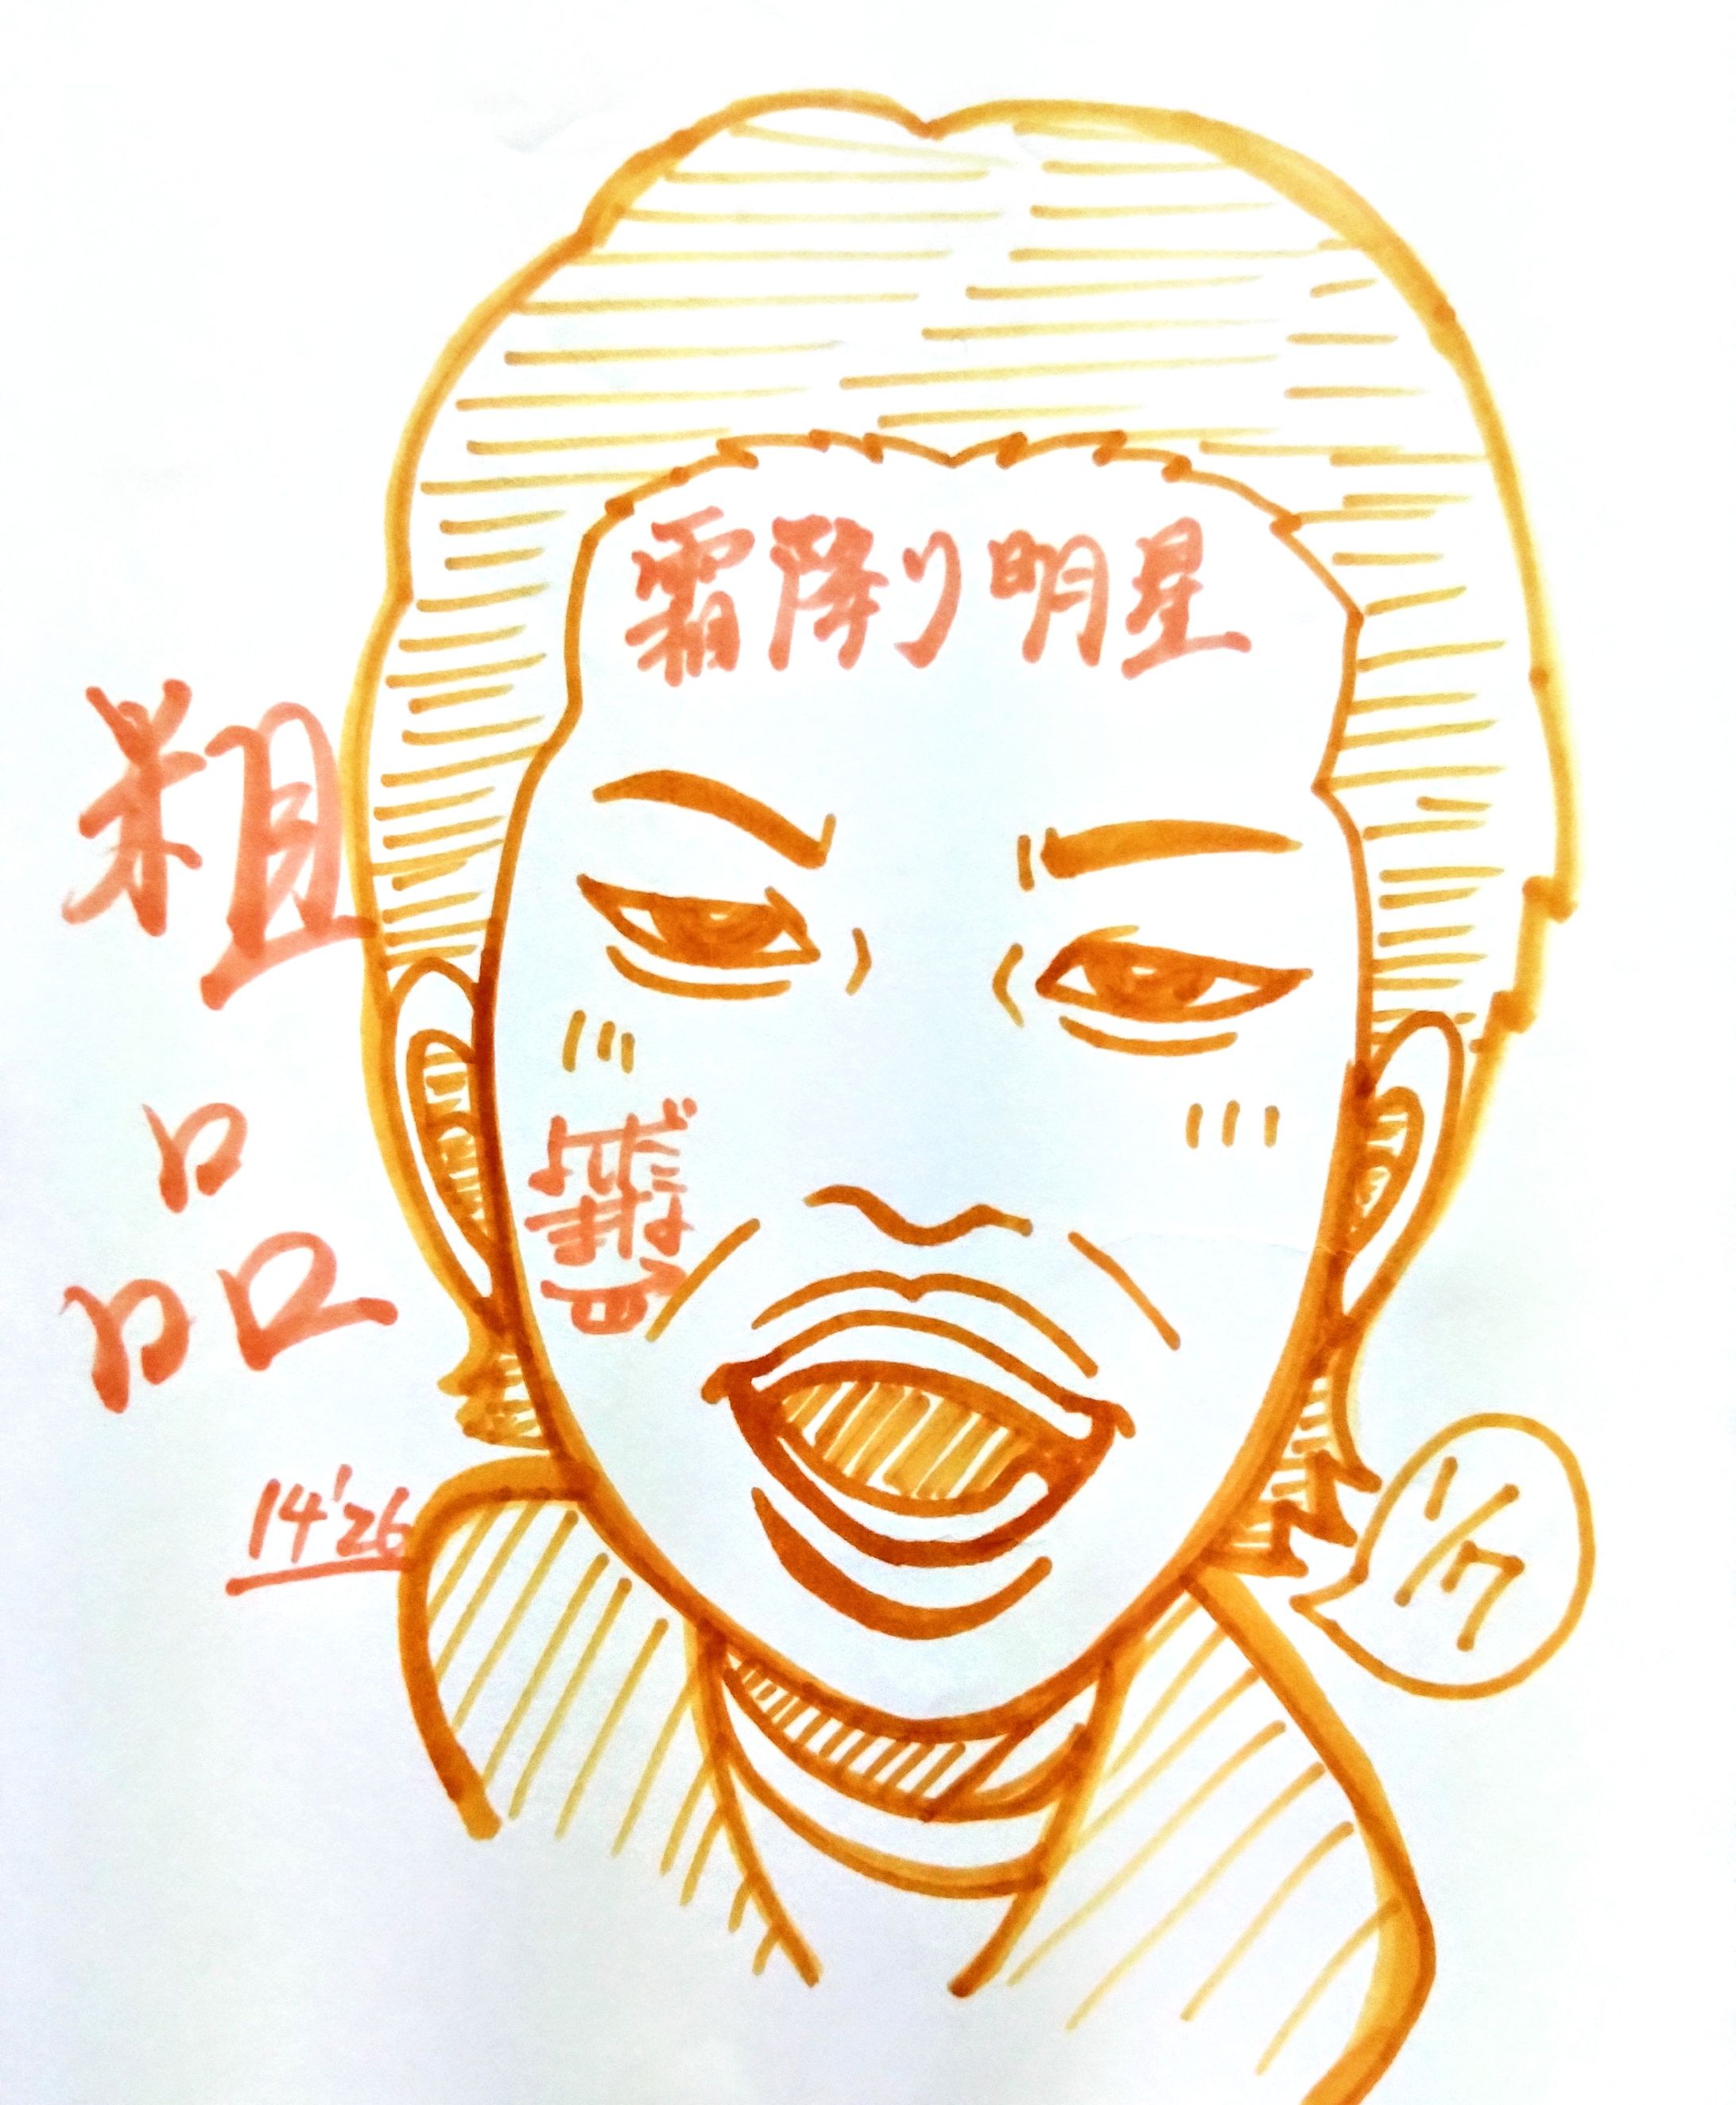 霜降り明星
粗品
14'26
1/7